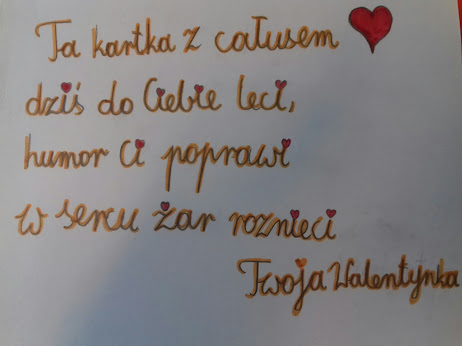 Ta kartka z całusem
dziś do Ciebie leci,
humor Ci poprawi
w sercu żar roznieci
Twoja Walentynka